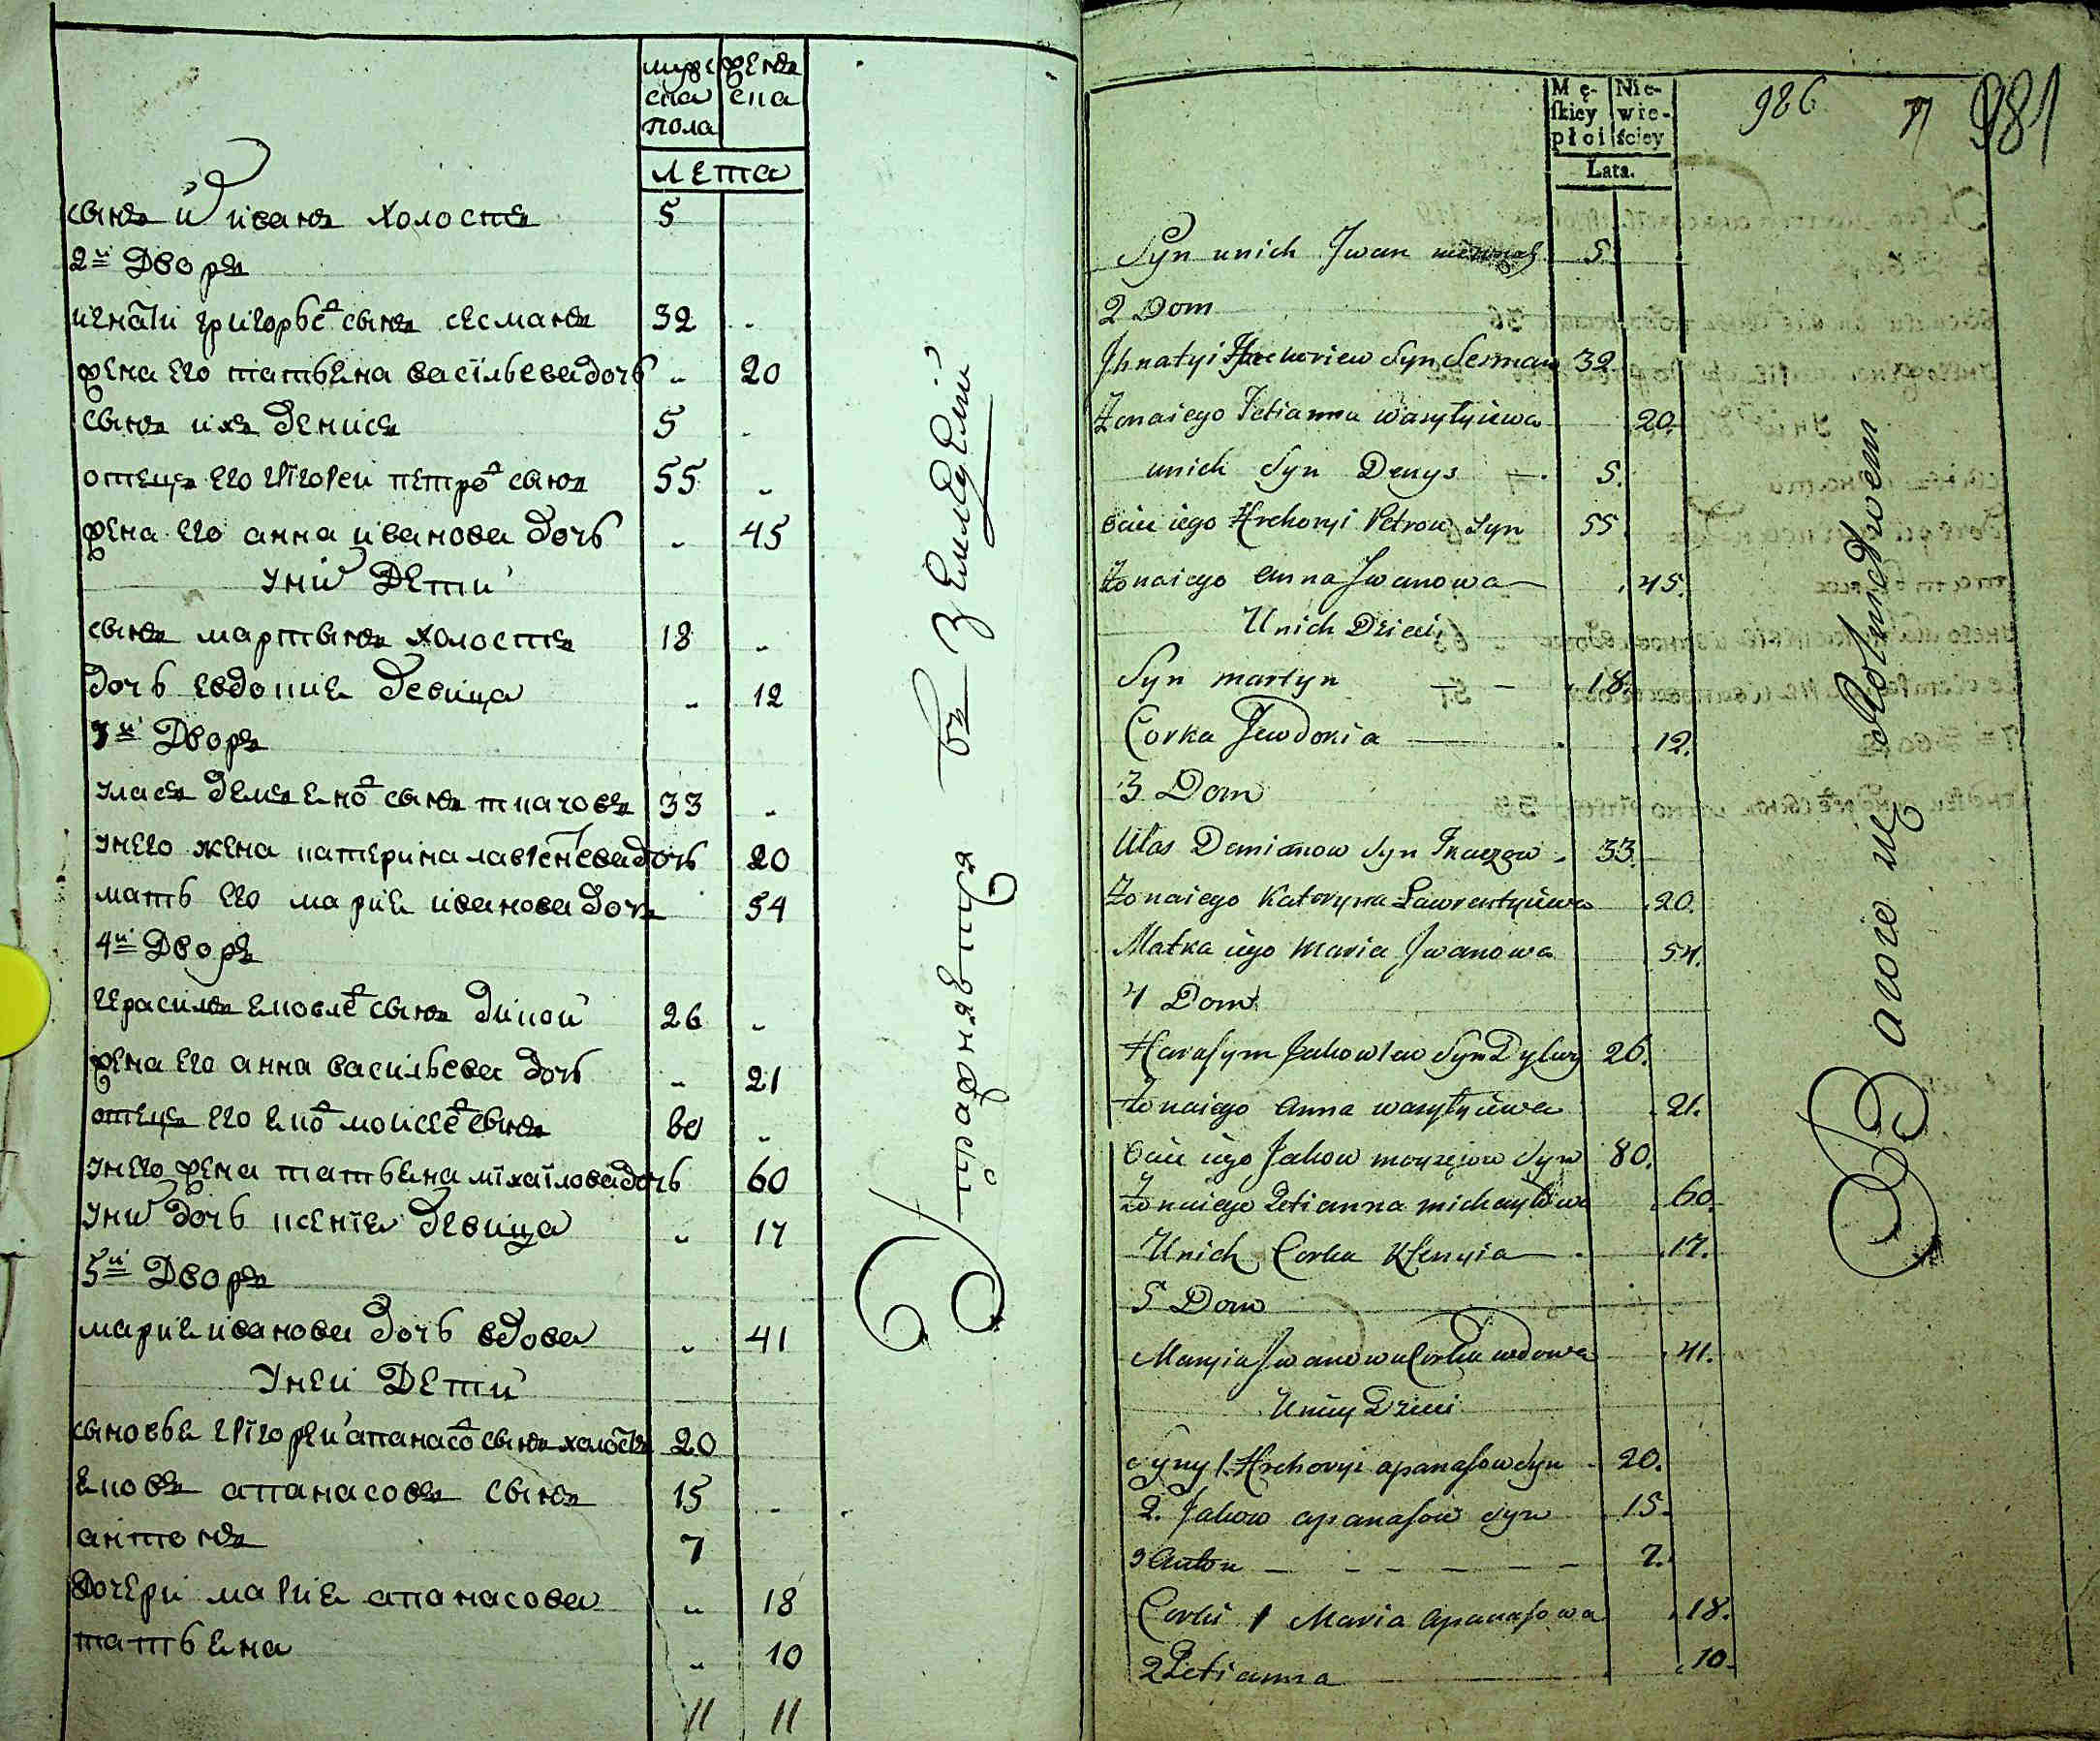 мужеска пола
женска
лета
сынъ их иванъ холостъ 5
2й Дворъ
игнати григорьевъ сынъ сесманъ 32 „
жена его татьяна васильева дочь „ 20
сынъ ихъ денисъ 5 „
отецъ его григорей петровъ сынъ 55 „
жена его анна иванова дочь „ 45
У них дети
сынъ мартынъ холостъ 18 „
дочь евдокия девица „ 12
3й Дворъ
уласъ демяновъ сынъ ткачовъ 33 „
у него жена катерина лаврентева дочь 20
мать его мария иванова дочъ 54
4й Дворъ
герасимъ яковлевъ сынъ дикой 26 „
жена его анна васильева дочь „ 21
отецъ его яковъ моисеевъ сынъ 80 „
у него жена татьяна михайлова дочь 60
у них дочь ксения девица „ 17
5й Дворъ
мария иванова дочь вдова „ 41
У ней дети
сыновья григорей апанасовъ сынъ холостъ 20
яковъ апанасовъ сынъ 15 „
антонъ 7
дочери мария апанасова „ 18
татьяна „ 10
11 11
упражняютца въ земледелии
Męskiey płci
Niewieściey
Lata.
986
981
Syn unich Jwan 5.
2 Dom
Jhnatyi Hrehoriew Syn Sesman 32.
Żona iego Tetianna wasyłyiewa 20.
unich Syn Denys 5.
Ociec iego Hrehoryi Petrow Syn 55.
Żona iego anna Jwanowa 45.
Unich Dzieci
Syn martyn 18.
Corka Jewdokia 12.
3 Dom
Ułas Demianow Syn Tkaczow 33.
Żona iego Kateryna Ławrentyiewa 20.
Matka iego Maria Jwanowa 54.
4 Dom
Harasym Jakowlew Syn 26.
Żona iego anna wasyłyiewa 21.
Ociec iego Jakow moyzejow Syn 80.
Żona iego Tetianna michayłowa 60.
Unich Corka Xsenyia 17.
5 Dom
Maryia Jwanowa Corka wdowa 41.
Uniey Dzieci
Syny 1. Hrehoryi apanasow Syn 20.
2. Jakow apanasow Syn 15.
3 Anton 7.
Corki 1 Maria apanasowa 18.
2 Tetianna 10.
Bawie się Rolnictwem